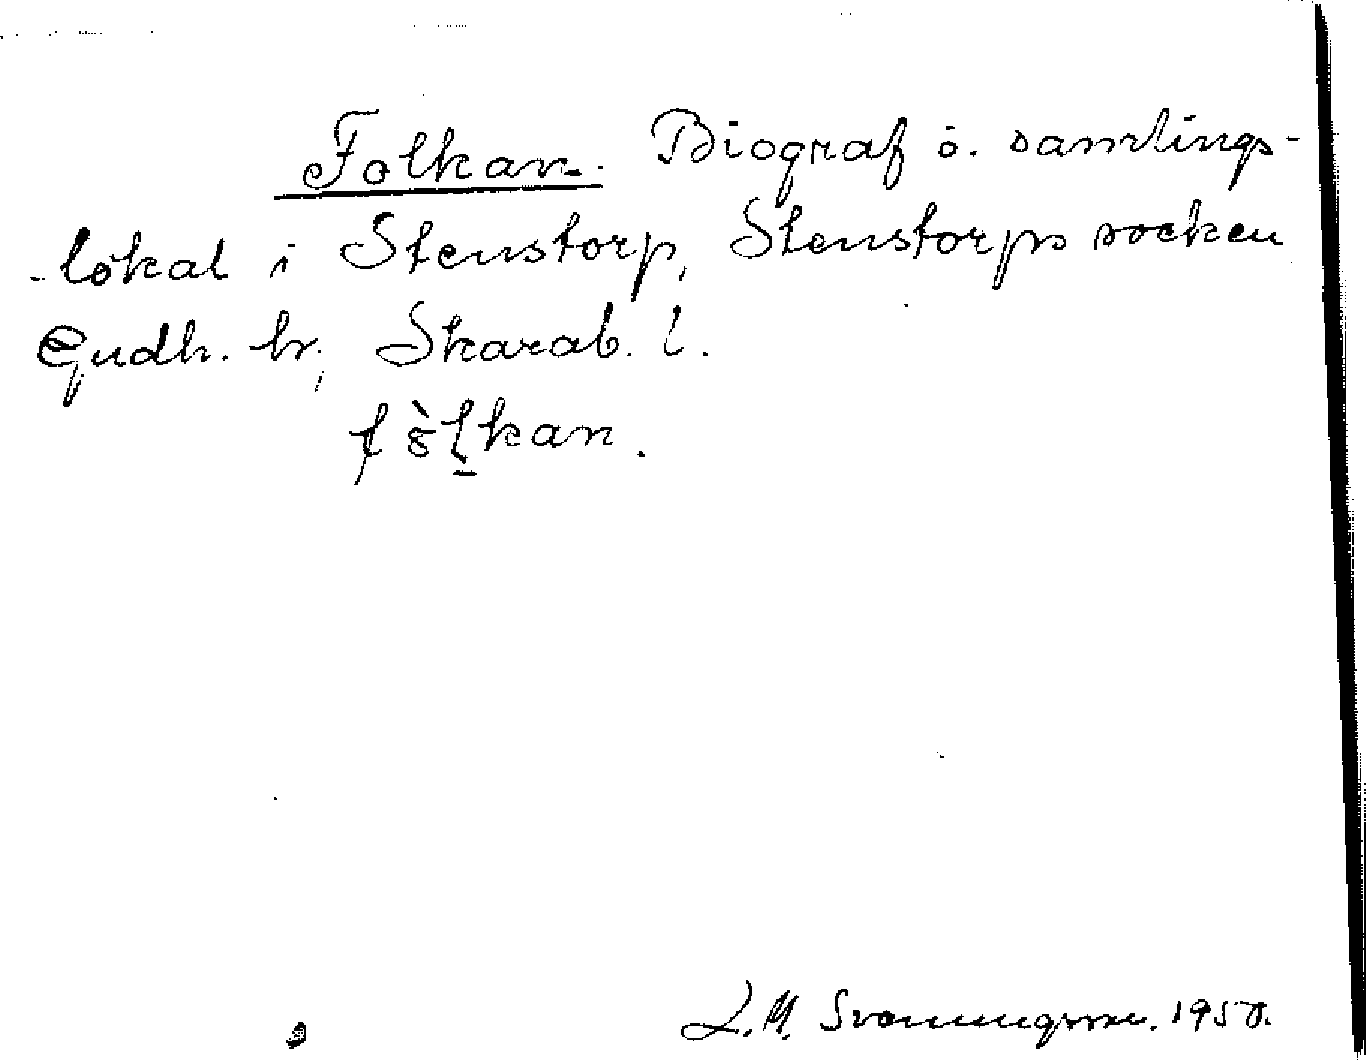 Folkan. Biograf o. samlings-
-lokal i Stenstorp, Stenstorps socken
Gudh. hr, Skarab. l.
fòlkan.
L.M. Svenungsson. 1950.